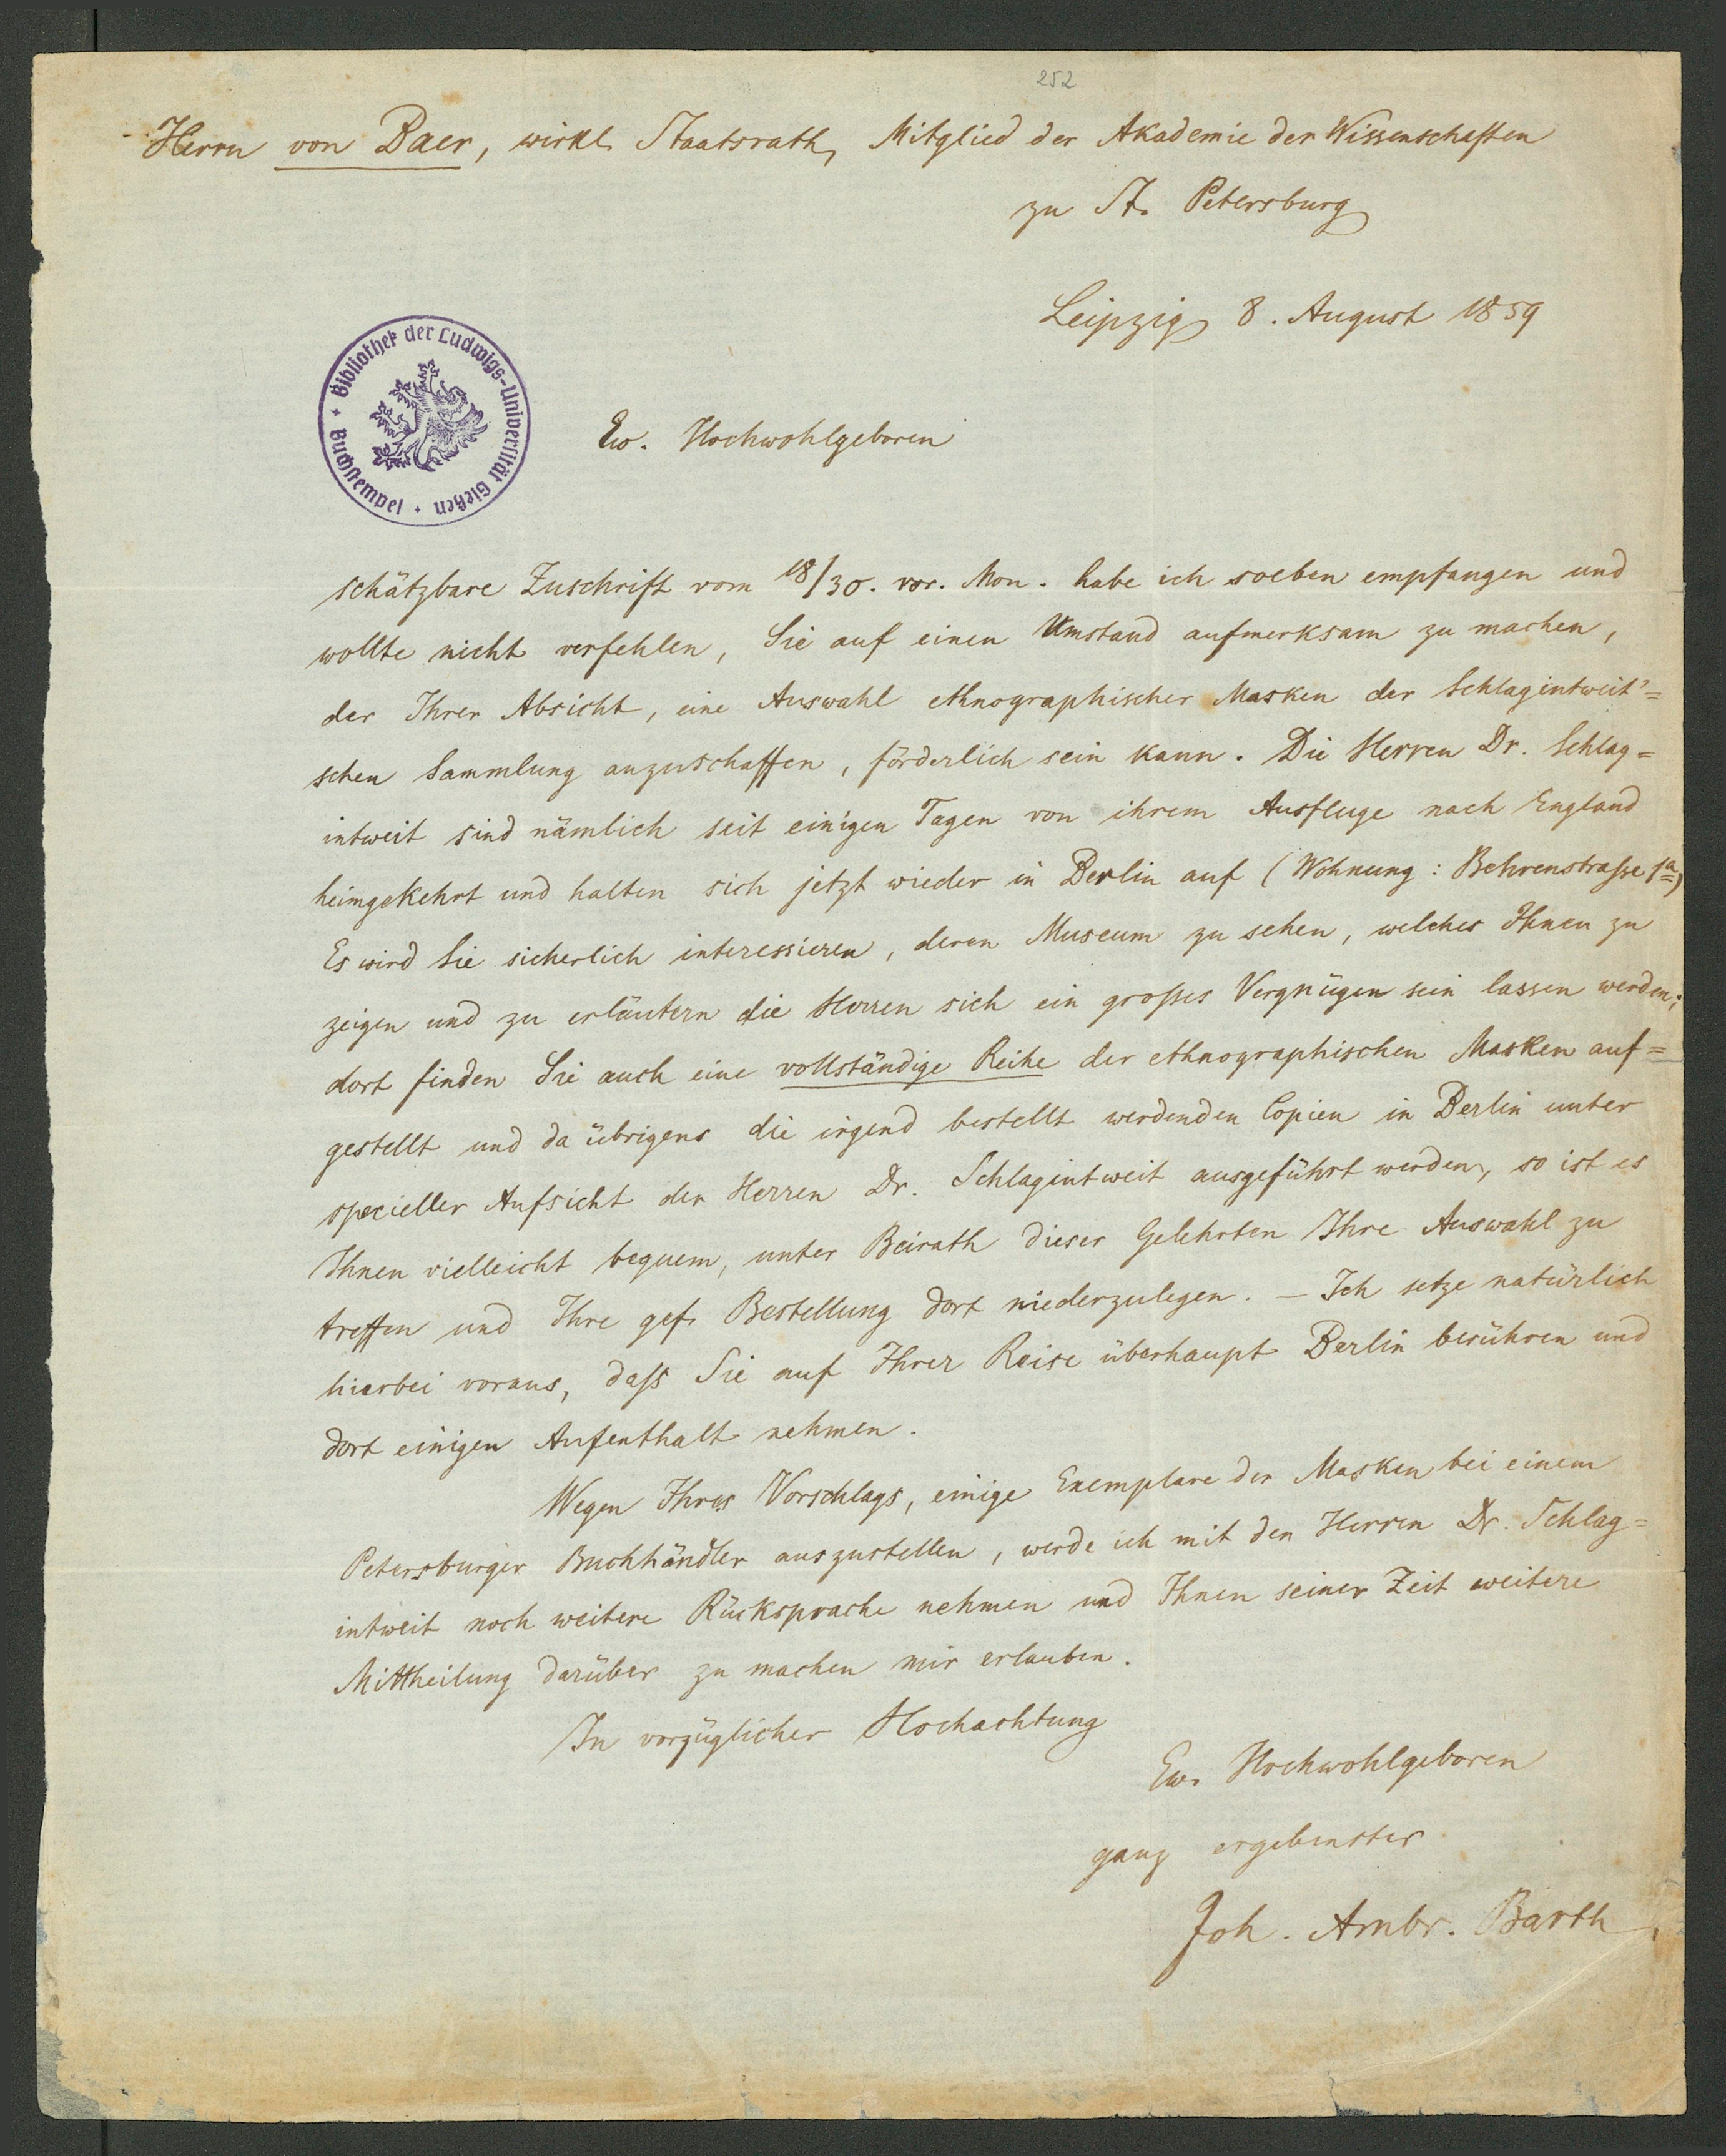 252
Herrn von Baer, wirkl. Staatsrath, Mitglied der Akademie der Wissenschaften
zu St. Petersburg
Leipzig 8. August 1859
Bibliothek der Ludwigs-Universität Gießen + Buchstempel +
Ew. Hochwohlgeboren
schätzbare Zuschrift vom 18/30. vor. Mon. habe ich soeben empfangen und
wollte nicht verfehlen, Sie auf einen Umstand aufmerksam zu machen,
der Ihrer Absicht, eine Auswahl ethnographischer Masken der Schlagintweit'=
schen Sammlung anzuschaffen, förderlich sein kann. Die Herren Dr. Schlag=
intweit sind nämlich seit einigen Tagen von ihrem Ausfluge nach England
heimgekehrt und halten sich jetzt wieder in Berlin auf (Wohnung: Behrenstraße 1a)
Es wird Sie sicherlich interessieren, deren Museum zu sehen, welches Ihnen zu
zeigen und zu erläutern die Herren sich ein großes Vergnügen sein lassen werden;
dort finden Sie auch eine vollständige Reihe der ethnographischen Masken auf=
gestellt und da übrigens die irgend bestellt werdenden Copien in Berlin unter
specieller Aufsicht der Herren Dr. Schlagintweit ausgeführt werden, so ist es
Ihnen vielleicht bequem, unter Beirath dieser Gelehrten Ihre Auswahl zu
treffen und Ihre gef. Bestellung dort niederzulegen. – Ich setze natürlich
hierbei voraus, daß Sie auf Ihrer Reise überhaupt Berlin berühren und
dort einigen Aufenthalt nehmen.
Wegen Ihres Vorschlags, einige Exemplare der Masken bei einem
Petersburger Buchhändler auszustellen, werde ich mit den Herren Dr. Schlag=
intweit noch weitere Rücksprache nehmen und Ihnen seiner Zeit weitere
Mittheilung darüber zu machen mir erlauben.
In vorzüglicher Hochachtung
Ew. Hochwohlgeboren
ganz ergebenster
Joh. Ambr. Barth